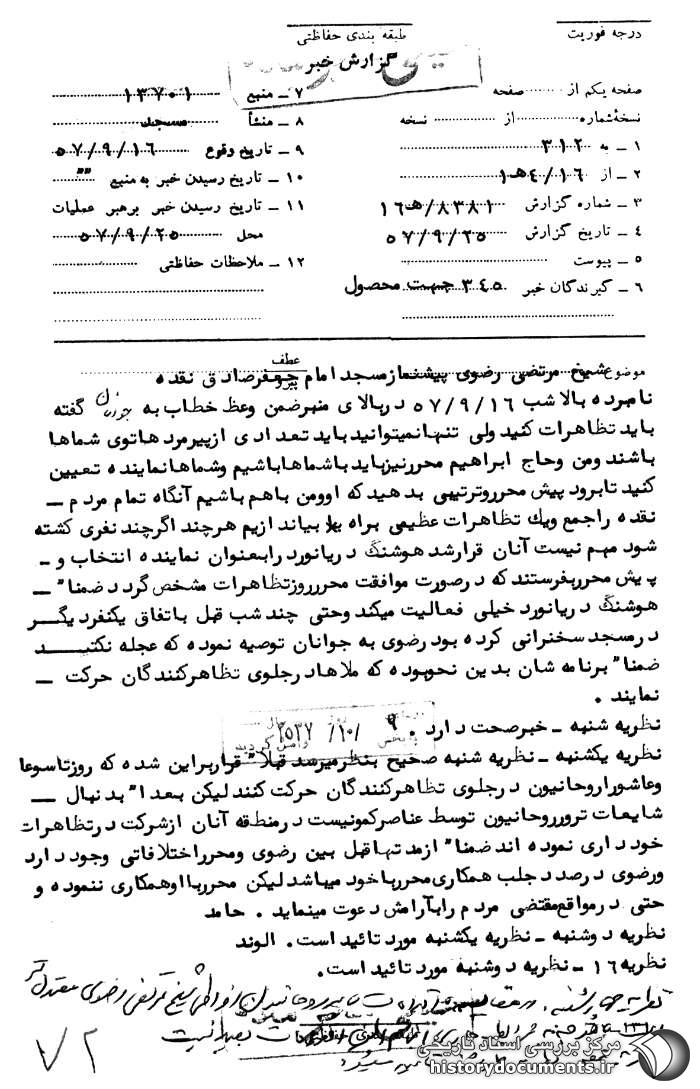 درجه فوریت
طبقه بندی حفاظتی
گزارش خبر
صفحه یکم از صفحه
نسخهٔ شماره از نسخه
۱ ـ به ۳۱۲
۲ ـ از ۱۶/٤هـ۱
۳ ـ شماره گزارش ۸۳۸۱/۱۶هـ
٤ ـ تاریخ گزارش ۵۷/۹/۲۵
۵ ـ پیوست
۶ ـ گیرندگان خبر ۳٤۵ جهت محصول
۷ ـ منبع ۱۳۷۰۱
۸ ـ منشأ مسجد
۹ ـ تاریخ وقوع ۵۷/۹/۱۶
۱۰ ـ تاریخ رسیدن خبر به منبع ""
۱۱ ـ تاریخ رسیدن خبر برهبر عملیات
محل ۵۷/۹/۲۵
۱۲ ـ ملاحظات حفاظتی
عطف
پیرو
موضوع شیخ مرتضی رضوی پیشنماز مسجد امام جعفر صادق نقده
نامبرده بالا شب ۵۷/۹/۱۶ در بالای منبر ضمن وعظ خطاب به جوانان گفته
باید تظاهرات کنید ولی تنها نمیتوانید باید تعدادی از پیر مردها توی شماها
باشند ومن وحاج ابراهیم محرر نیز باید با شماها باشیم وشماها نماینده تعیین
کنید تا برود پیش محرر و ترتیبی بدهید که او ومن باهم باشیم آنگاه تمام مردم ــ
نقده را جمع ویك تظاهرات عظیمی براه بیاندازیم هرچند اگر چند نفری کشته
شود مهم نیست آنان قرار شد هوشنگ دریانورد را بعنوان نماینده انتخاب و ـ
پیش محرر بفرستند که در صورت موافقت محرر روز تظاهرات مشخص گردد ضمنا" ــ
هوشنگ دریانورد خیلی فعالیت میکند وحتی چند شب قبل باتفاق یکنفر دیگر
در مسجد سخنرانی کرده بود رضوی به جوانان توصیه نموده که عجله نکنند
ضمنا" برنامه شان بدین نحو بوده که ملاها در جلوی تظاهرکنندگان حرکت ــ
نمایند .
نظریه شنبه ـ خبر صحت دارد .
۹ /۱۰/ ۲۵۳۷
نظریه یکشنبه ـ نظریه شنبه صحیح بنظر میرسد قبلا" قرار براین شده که روز تاسوعا
وعاشورا روحانیون در جلوی تظاهرکنندگان حرکت کنند لیکن بعدا" بدنبال ــ
شایعات ترور روحانیون توسط عناصر کمونیست در منطقه آنان از شرکت در تظاهرات
خودداری نموده اند ضمنا" از مدتها قبل بین رضوی ومحرر اختلافاتی وجود دارد
ورضوی درصدد جلب همکاری محرر با خود میباشد لیکن محرر با او همکاری ننموده و
حتی در مواقع مقتضی مردم را بآرامش دعوت مینماید . حامد
نظریه دوشنبه ـ نظریه یکشنبه مورد تائید است . الوند
نظریه ۱۶ ـ نظریه دوشنبه مورد تائید است .
نظریه چهارشنبه
شیخ مرتضی رضوی
۷۲
مرکز بررسی اسناد تاریخی
historydocuments.ir